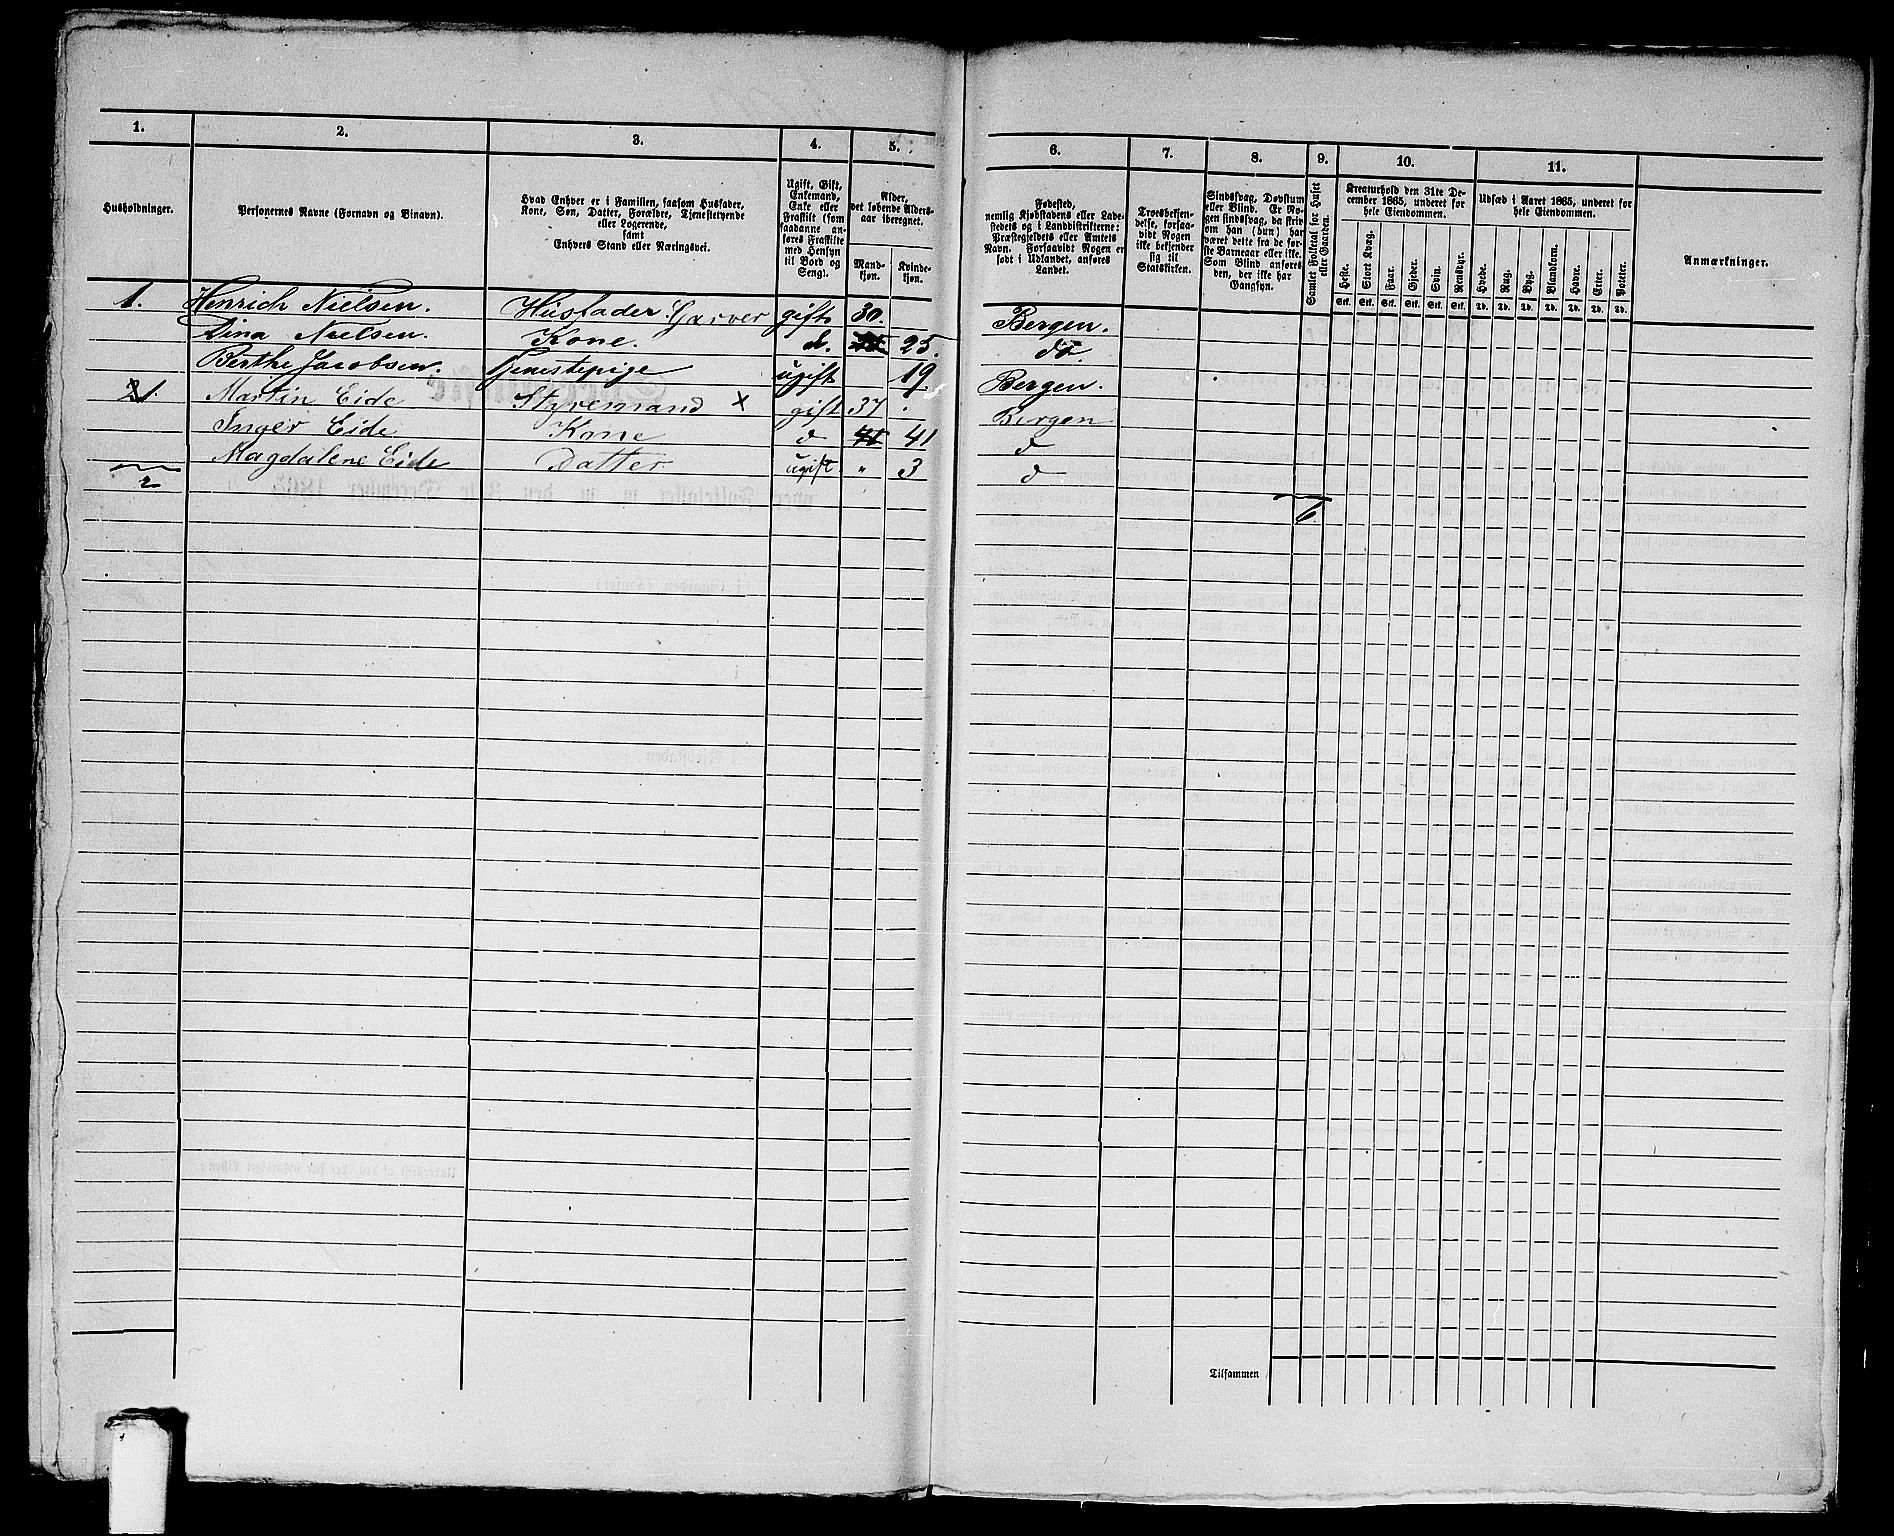 1. 2. 3. 4. 5. 6. 7. 8. 9. 10. 11.
Husholdninger.
Personernes Navne (Fornavn og Binavn).
Hvad Enhver er i Familien, saasom Husfader,
Kone, Søn, Datter, Forældre, Tjenestetyende
eller Logerende,
samt
Enhvers Stand eller Næringsvei.
Ugift, Gift,
Enkemand,
Enke eller
Fraskilt (som
saadanne an-
føres Fraskilte
med Hensyn
til Bord og
Seng).
Alder,
det løbende Alders-
aar iberegnet.
Mand-
kjøn.
Kvinde-
kjøn.
Fødested,
nemlig Kjøbstadens eller Lade-
stedets og i Landdistrikterne:
Præstegjeldets eller Amtets
Navn. Forsaavidt Nogen er
født i Udlandet, anføres
Landet.
Troesbekjen-
delse, forsaa-
vidt Nogen
ikke bekjender
sig til
Statskirken.
Sindssvag, Døvstum
eller Blind. Er No-
gen sindssvag, da skriv
om han (hun) har
været dette fra de før-
ste Barneaar eller ikke.
Som Blind anføres
den, der ikke har
Gangsyn.
Samlet Folketal for Huset
eller Gaarden.
Kreaturhold den 31te De-
cember 1865, underet for
hele Eiendommen.
Heste. Stort Kvæg. Faar. Gjeder. Svin. Rensdyr.
Stk. Stk. Stk. Stk. Stk. Stk.
Udsæd i Aaret 1865, underet for
hele Eiendommen.
Hvede. Rug. Byg. Blandkorn. Havre. Erter. Poteter.
Td. Td. Td. Td. Td. Td. Td.
Anmærkninger.
1. Henrich Nielsen. Husfader. Garver gift 30. Bergen.
Dina Nielsen. Kone. d. 25. do.
Berthe Jacobsen. Tjenestepige ugift 19 Bergen.
1. Martin Eide Styremand x gift 37 Bergen
Inger Eide Kone d 41 d
Magdalene Eide Datter ugift " 3 d
2
6
Tilsammen